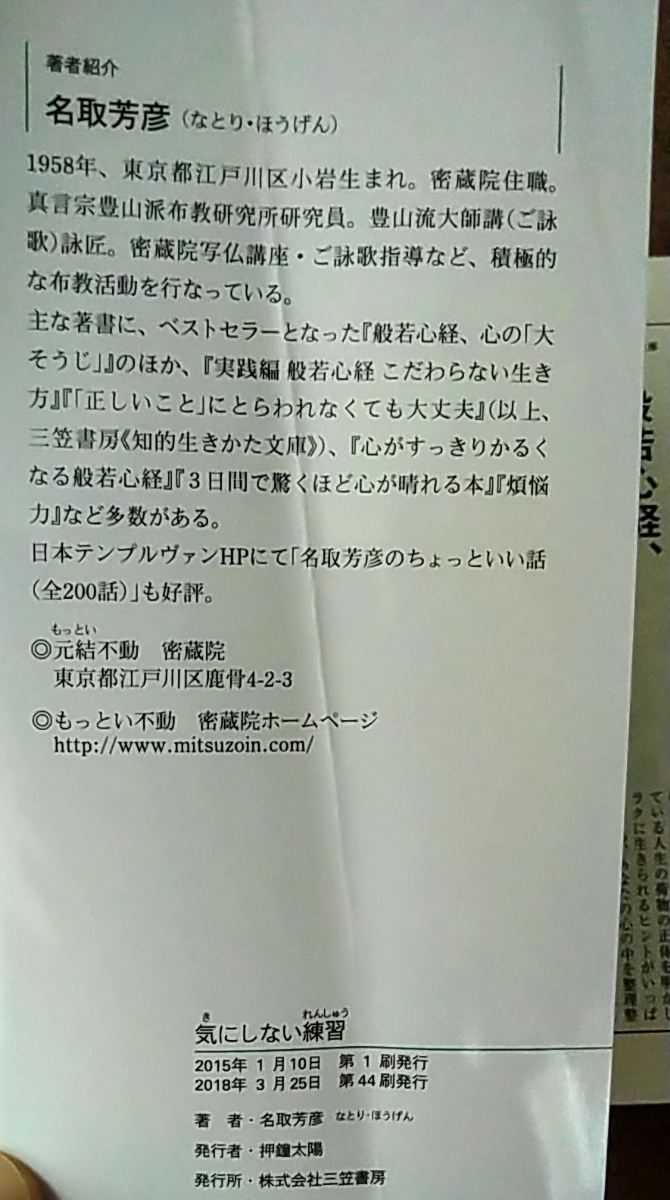 著者紹介
名取芳彦（なとり・ほうげん）
1958年、東京都江戸川区小岩生まれ。密蔵院住職。
真言宗豊山派布教研究所研究員。豊山流大師講（ご詠
歌）詠匠。密蔵院写仏講座・ご詠歌指導など、積極的
な布教活動を行なっている。
主な著書に、ベストセラーとなった『般若心経、心の「大
そうじ」』のほか、『実践編 般若心経 こだわらない生き
方』『「正しいこと」にとらわれなくても大丈夫』（以上、
三笠書房《知的生きかた文庫》）、『心がすっきりかるく
なる般若心経』『３日間で驚くほど心が晴れる本』『煩悩
力』など多数がある。
日本テンプルヴァンHPにて「名取芳彦のちょっといい話
（全200話）」も好評。
もっとい
◎元結不動　密蔵院
東京都江戸川区鹿骨4-2-3
◎もっとい不動　密蔵院ホームページ
http://www.mitsuzoin.com/
き　れんしゅう
気にしない練習
2015年 1 月10日　第 1 刷発行
2018年 3 月25日　第44刷発行
著　者・名取芳彦　なとり・ほうげん
発行者・押鐘太陽
発行所・株式会社三笠書房
庫
般若心経、
ている人生の荷物の正体を明かし
ラクに生きられるヒントがいっぱ
の心の中を整理整